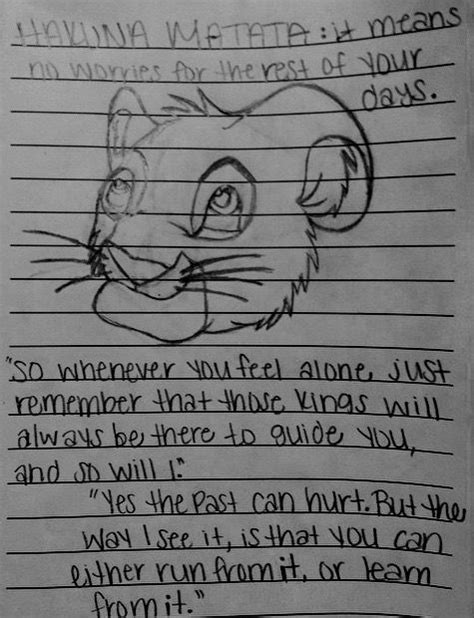 HAKUNA MATATA: it means
no worries for the rest of your
days.
"So whenever you feel alone, just
remember that those kings will
always be there to guide you,
and so will I."
"Yes the past can hurt. But the
way I see it, is that you can
either run from it, or learn
from it."